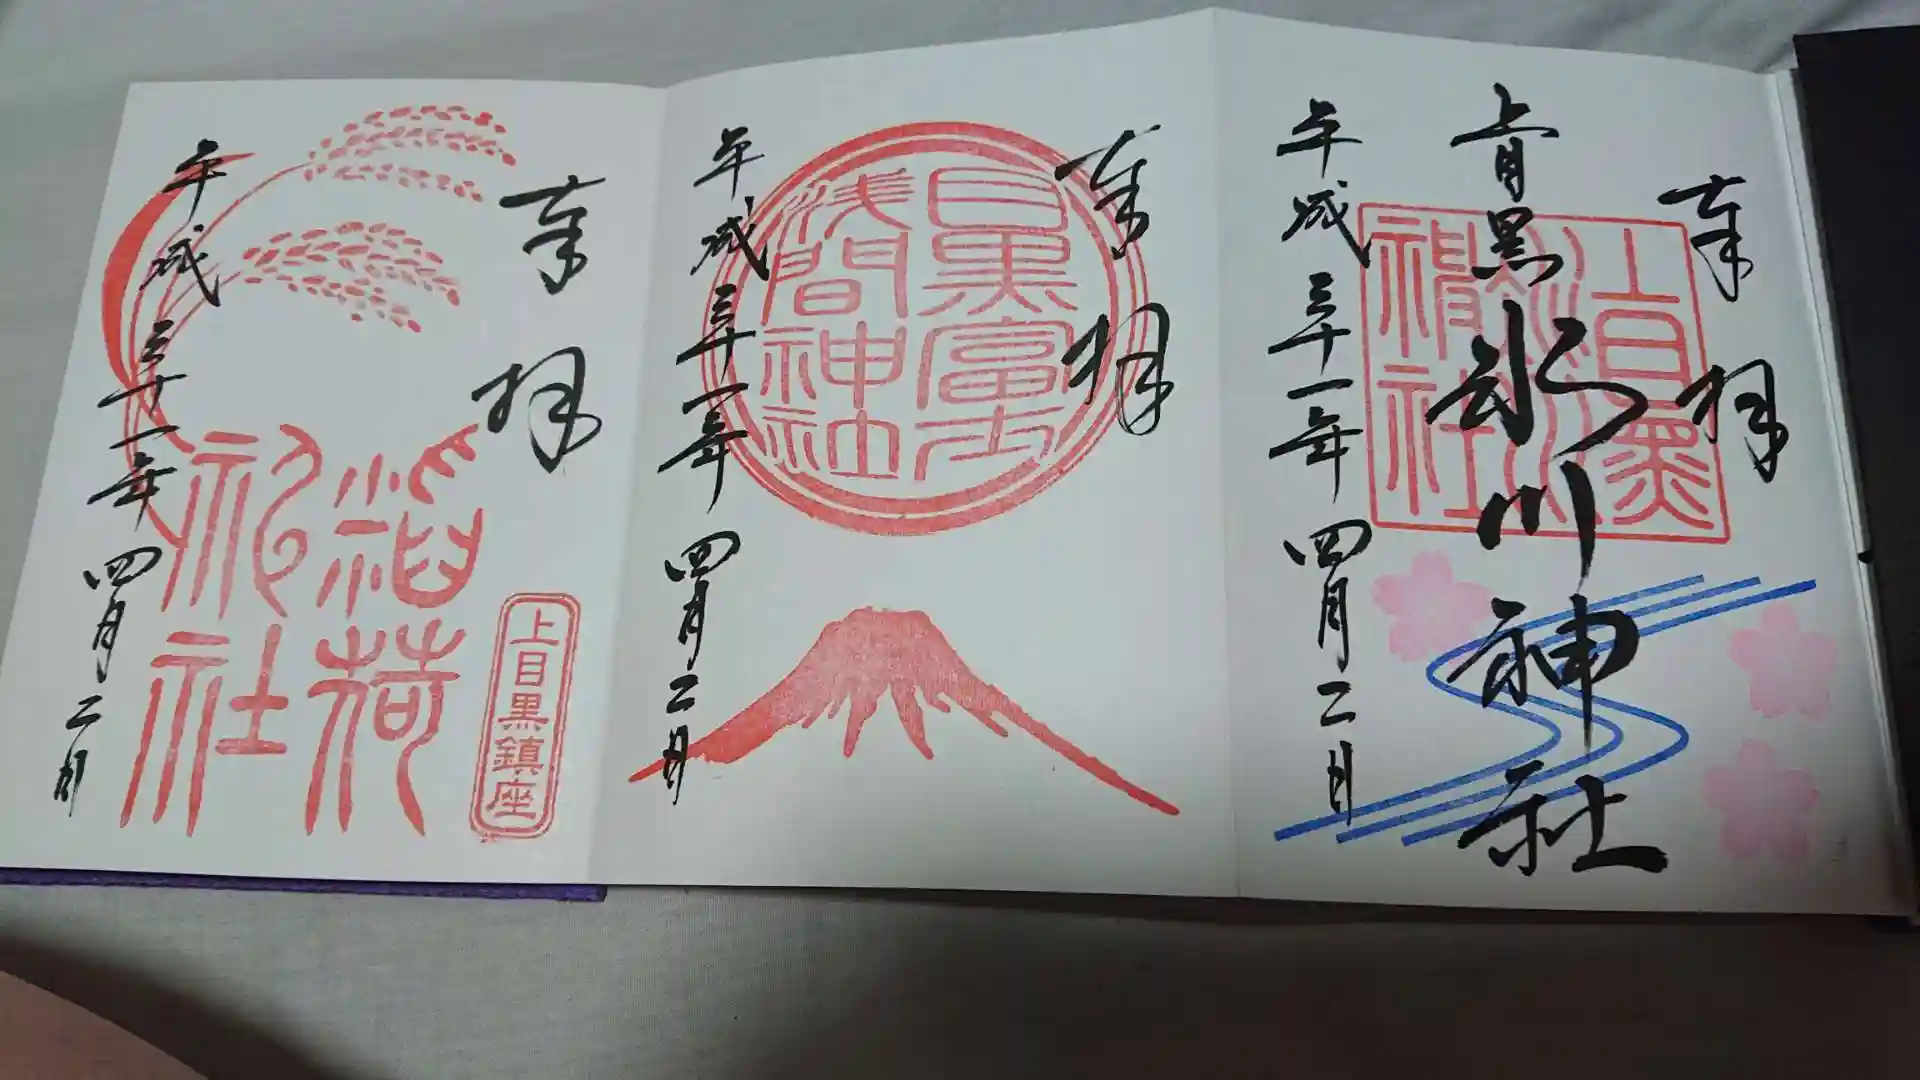 奉拝
上目黒氷川神社
上目黒
氷川
神社
平成三十一年四月二日
奉拝
目黒富士
浅間神社
平成三十一年四月二日
奉拝
稲荷
神社
上目黒鎮座
平成三十一年四月二日